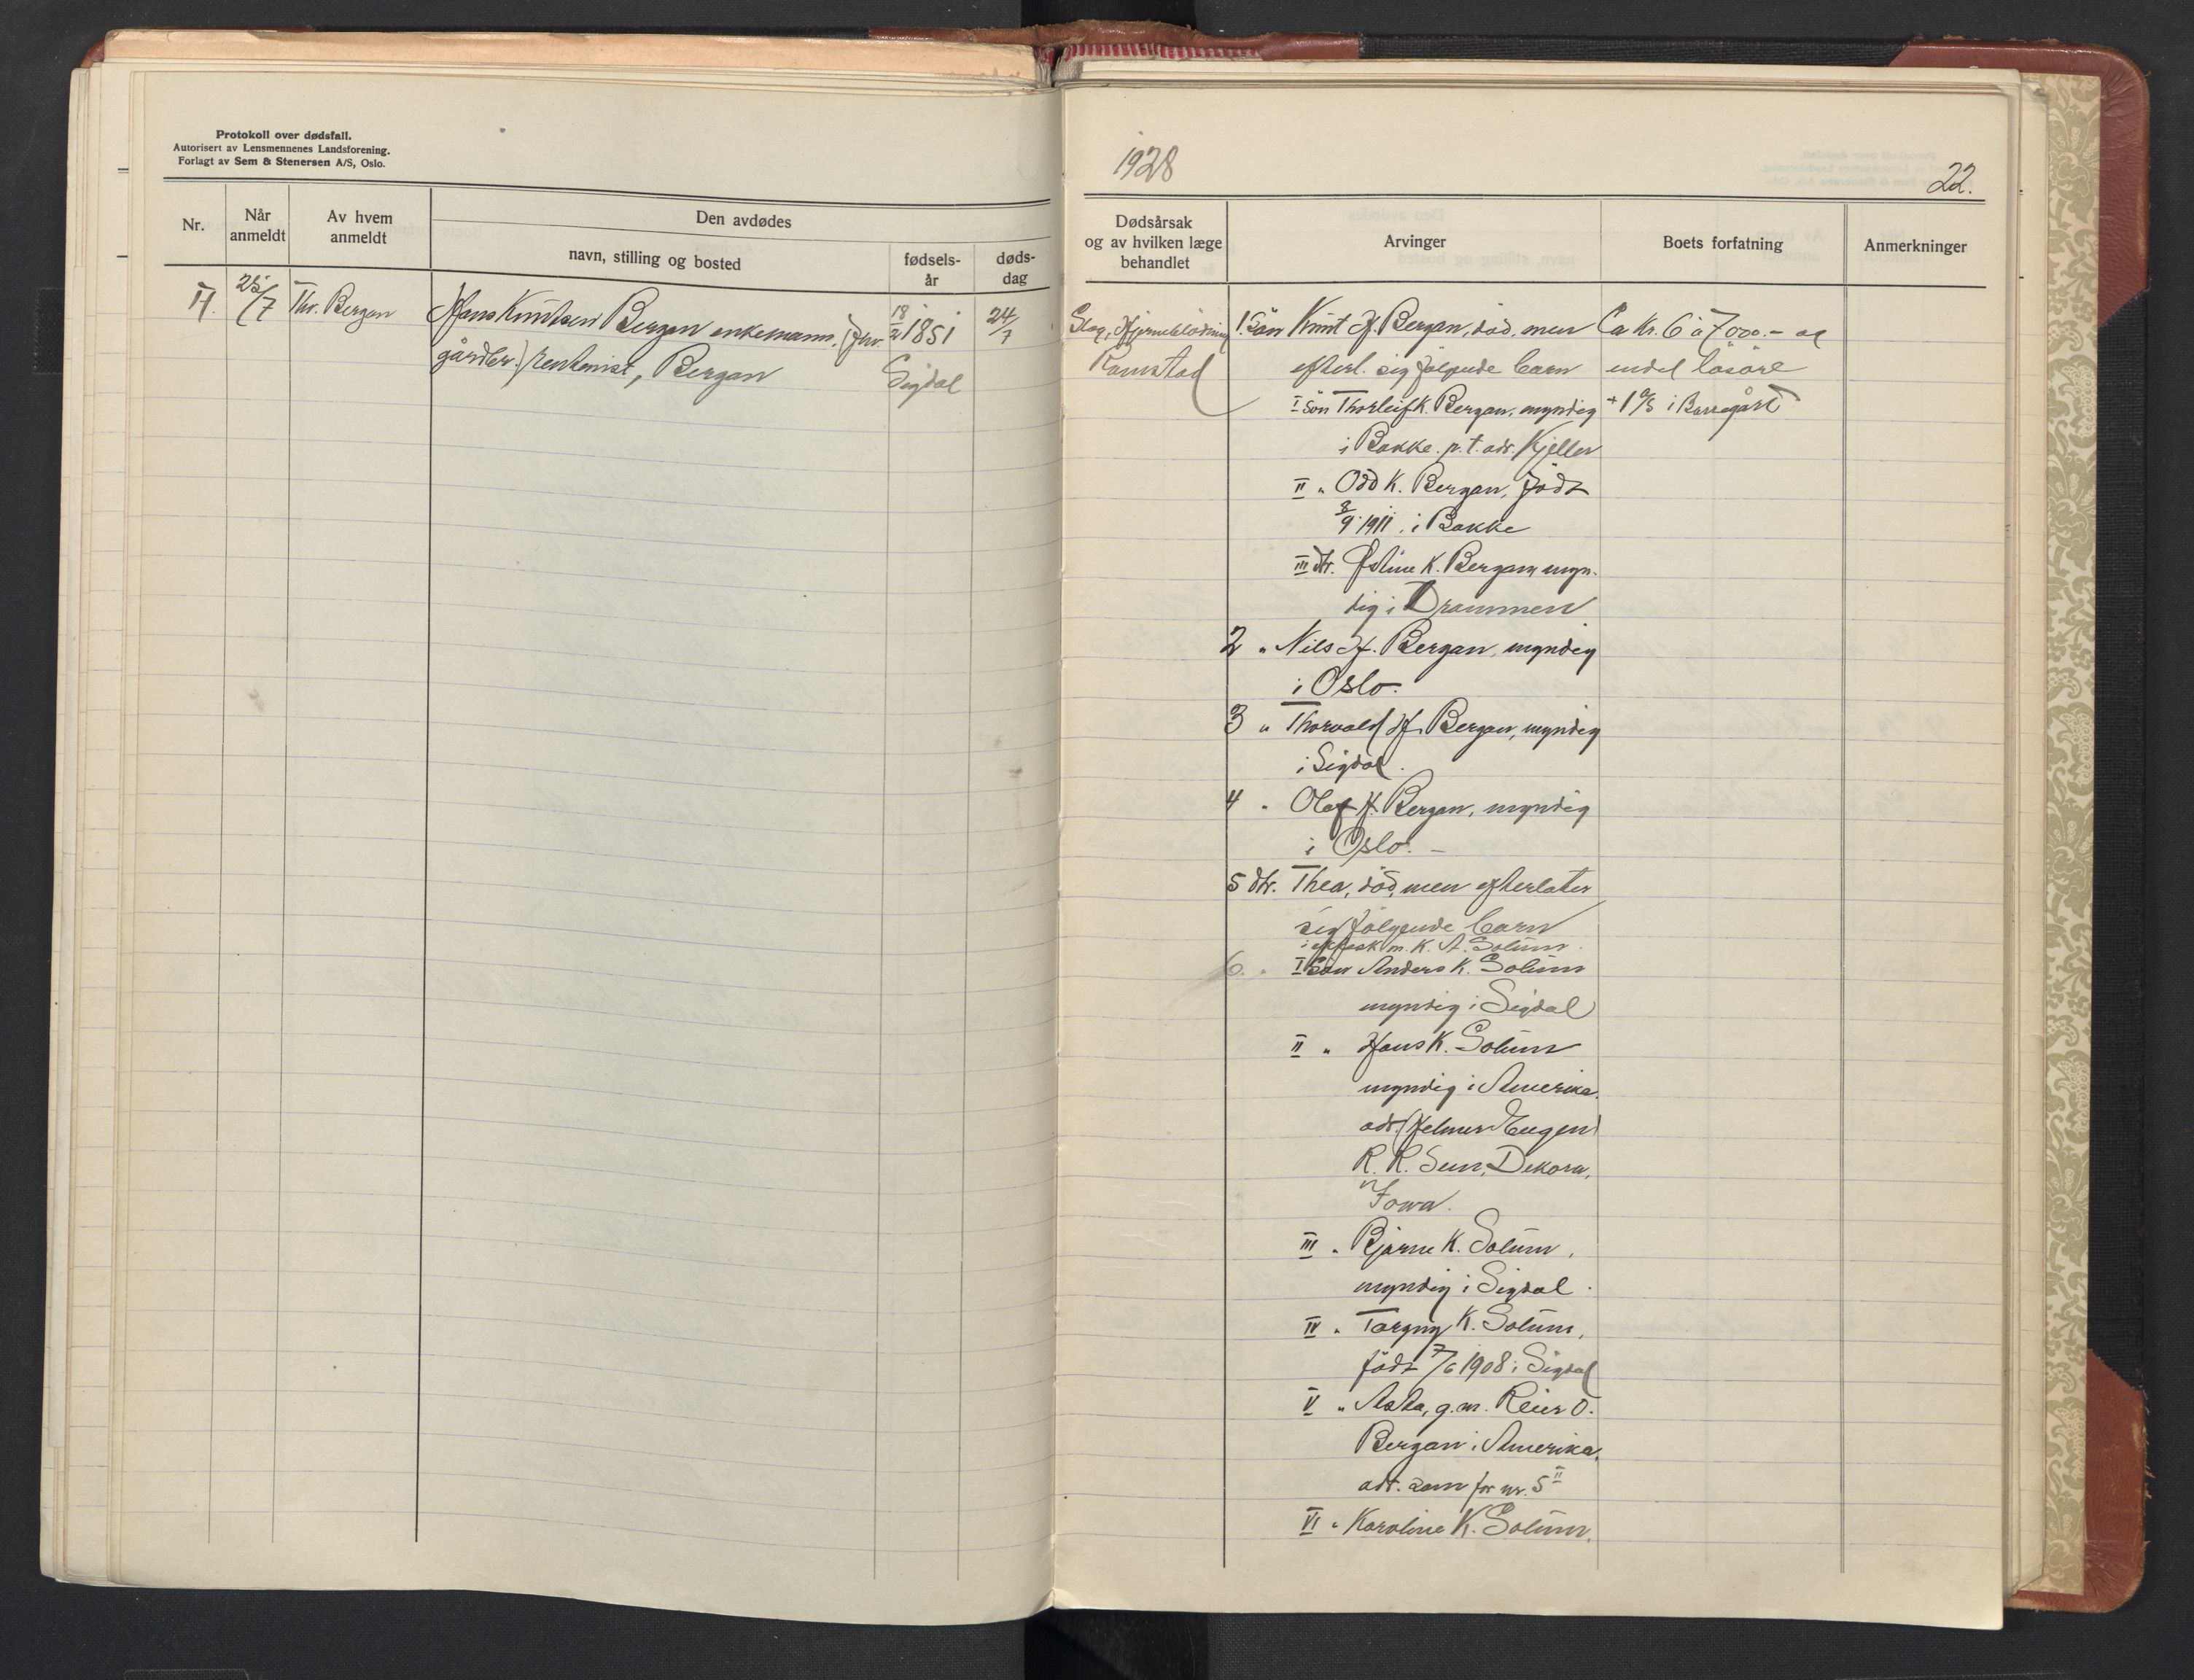 Protokoll over dødsfall.
Autorisert av Lensmennenes Landsforening.
Forlagt av Sem & Stenersen A/S, Oslo.
Nr.
Når anmeldt
Av hvem anmeldt
Den avdødes
navn, stilling og bosted
fødsels-år
døds-dag
25/7 Thv. Bergan Hans Knutsen Bergan enkemann, (fhv. 18/2 1851 24/7
gårdbr.) rentenist, Bergan Sigdal
1928
22.
Dødsårsak og av hvilken læge behandlet
Arvinger
Boets forfatning
Anmerkninger
Slag, Hjerneblödning 1. Sön Knut H. Bergan, död, men Ca kr. 6 à 7000.- og
Ramstad efterl. sig fölgende barn endel lösöre
I Sön Thorleif K. Bergan, myndig + 1/5 i
i Bakke. p.t. adr. Kjeller
II " Odd K. Bergan, födt
8/9 1911. i Bakke
III dtr. K. Bergan, myn-
dig i Drammen
2 " Nils H. Bergan, myndig
i Oslo.
3 " Thorvald H. Bergan, myndig
i Sigdal.
4 " Olaf H. Bergan, myndig
i Oslo. -
5 dtr. Thea, död, men efterlater
sig fölgende barn
i ektesk m. K. A. Solum.
6. " I Sön Anders K. Solum
myndig i Sigdal
II " Hans K. Solum
myndig i Amerika.
adr. Helmer Eugen
R. R. Dekora,
Iowa.
III " Bjarne K. Solum,
myndig i Sigdal.
IV " Torgny K. Solum,
födt 7/6 1908 i Sigdal
V " Asta, g.m. Reier O.
Bergan i Amerika.
adr. som for nr. 5 II
VI " Karoline K. Solum,